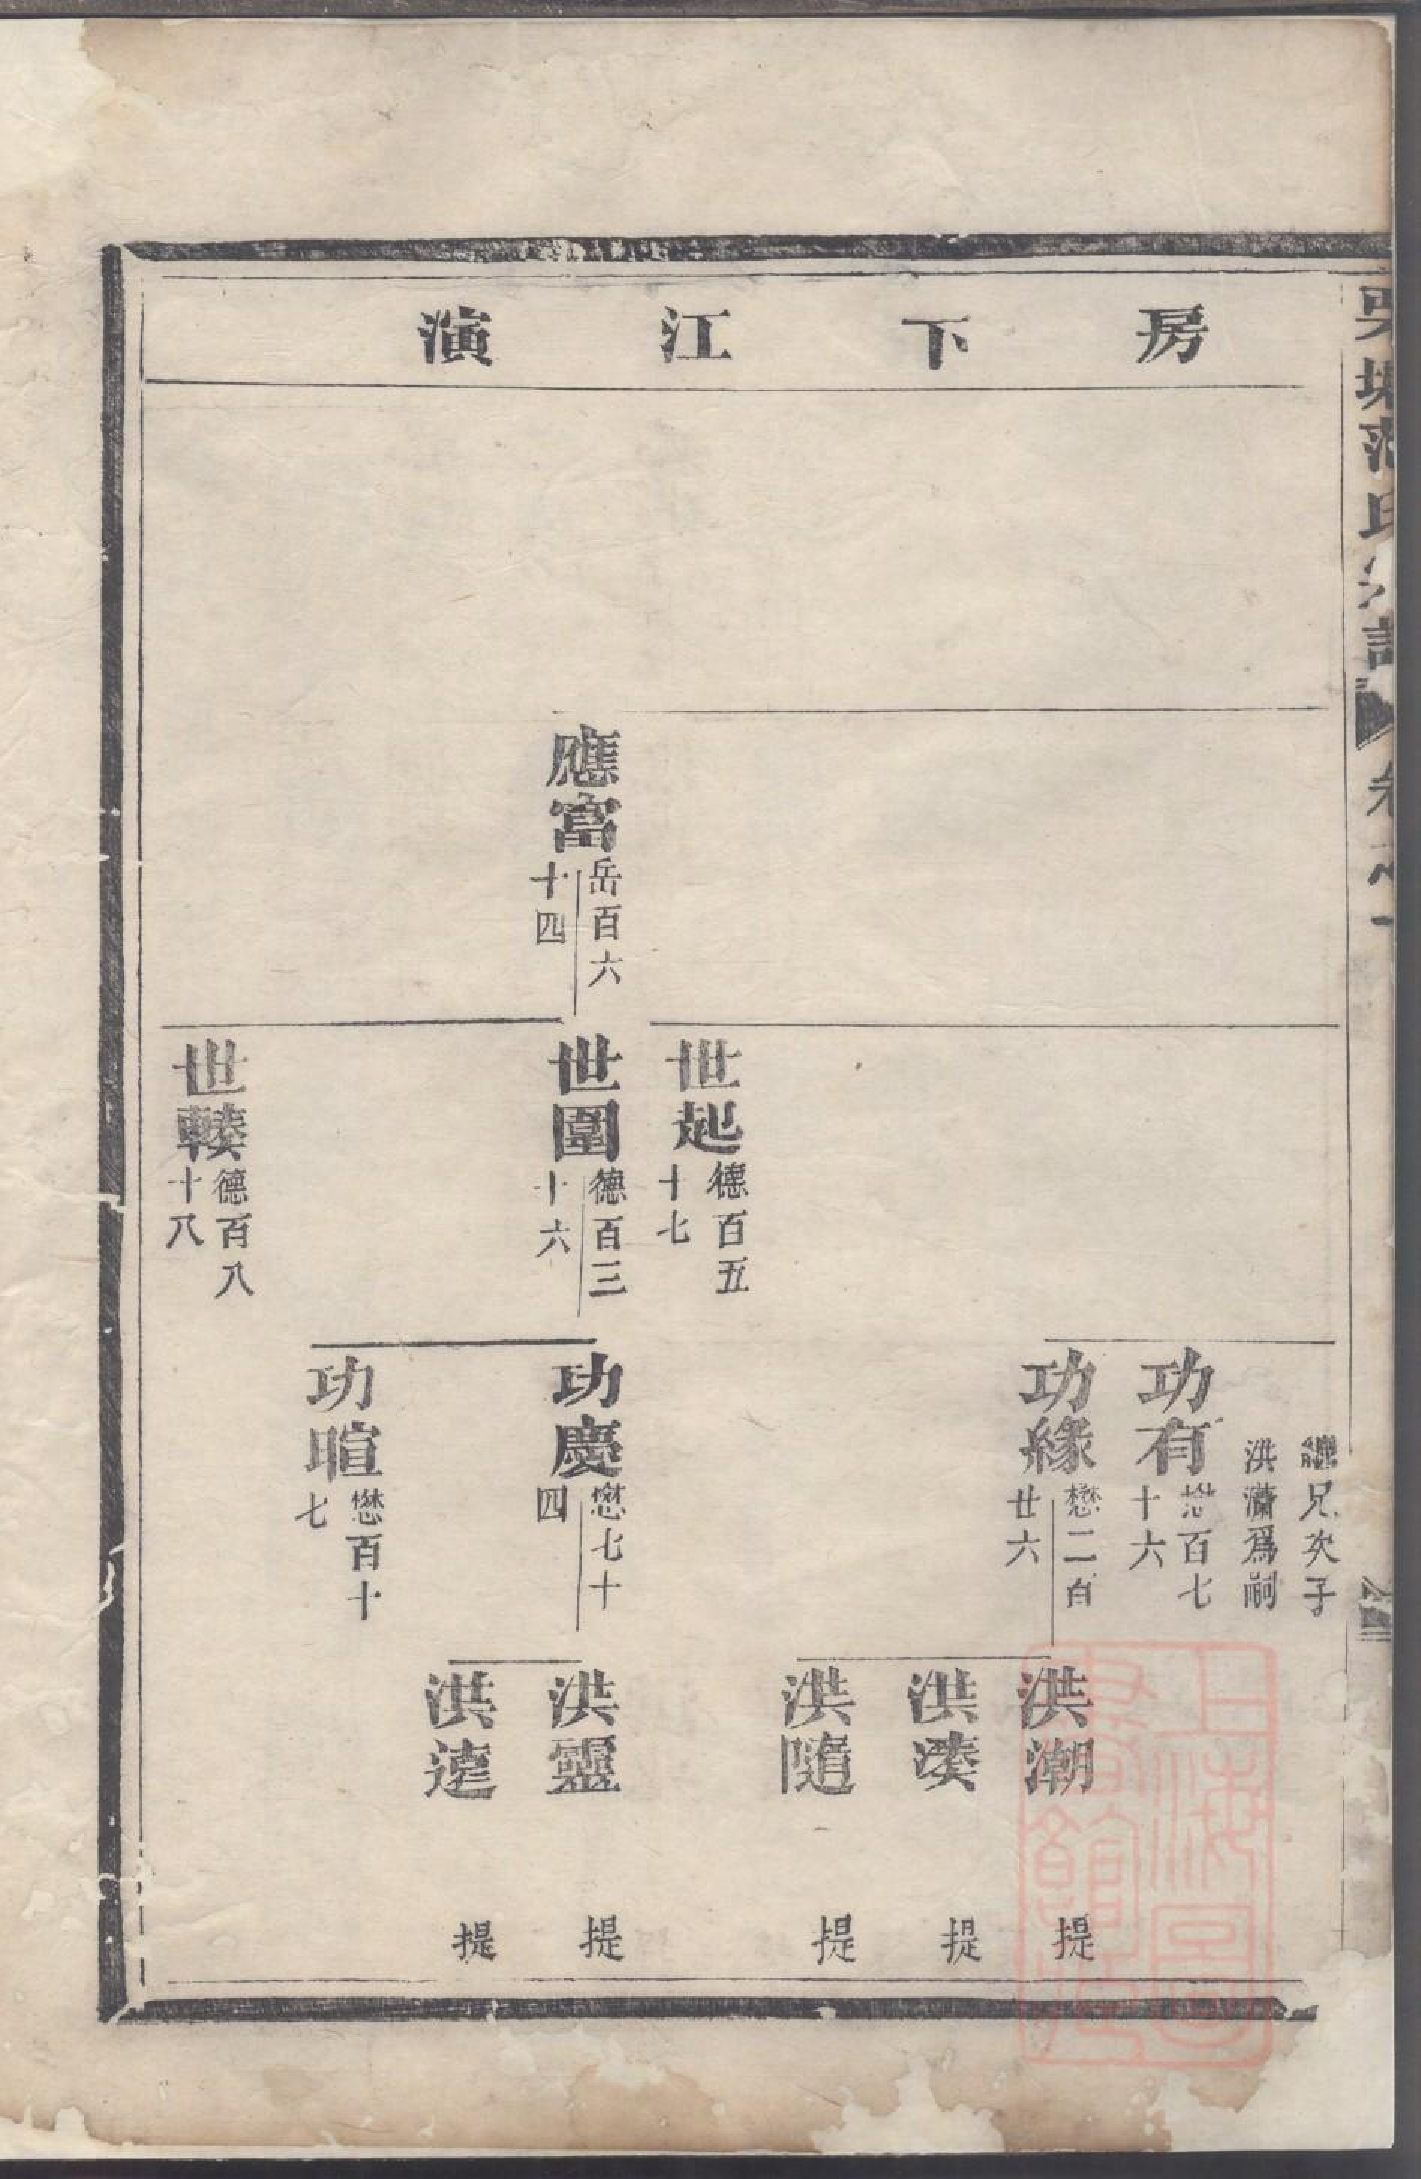 房下江演
氏
卷之一
繼兄次子
洪瀟爲嗣
功有
百七
十六
功緣
懋二百
廿六
洪潮
提
洪湊
提
洪隨
提
世起
德百五
十七
應富
岳百六
十四
世圍
德百三
十六
功慶
懋七十
四
洪靈
提
洪逵
提
功暄
懋百十
七
世轃
德百八
十八
上海圖書館藏